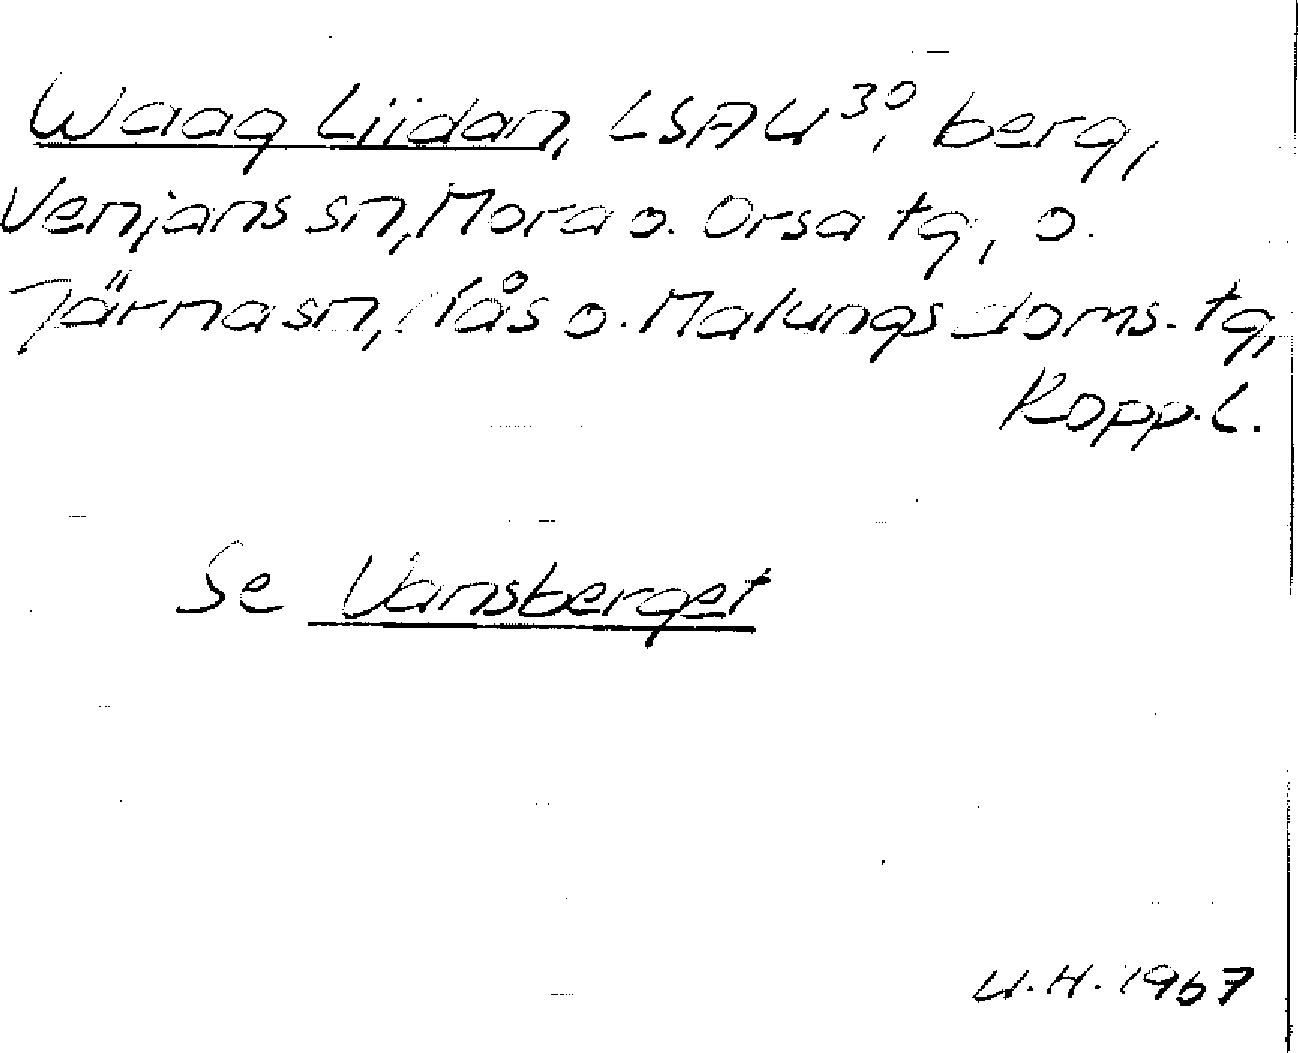 Waag Liidan, LSA U³⁰, berg,
Venjans sn, Mora o. Orsa tg, o.
Järna sn, Nås o. Malungs doms. tg,
Kopp. l.
Se Vansberget
U.H. 1967